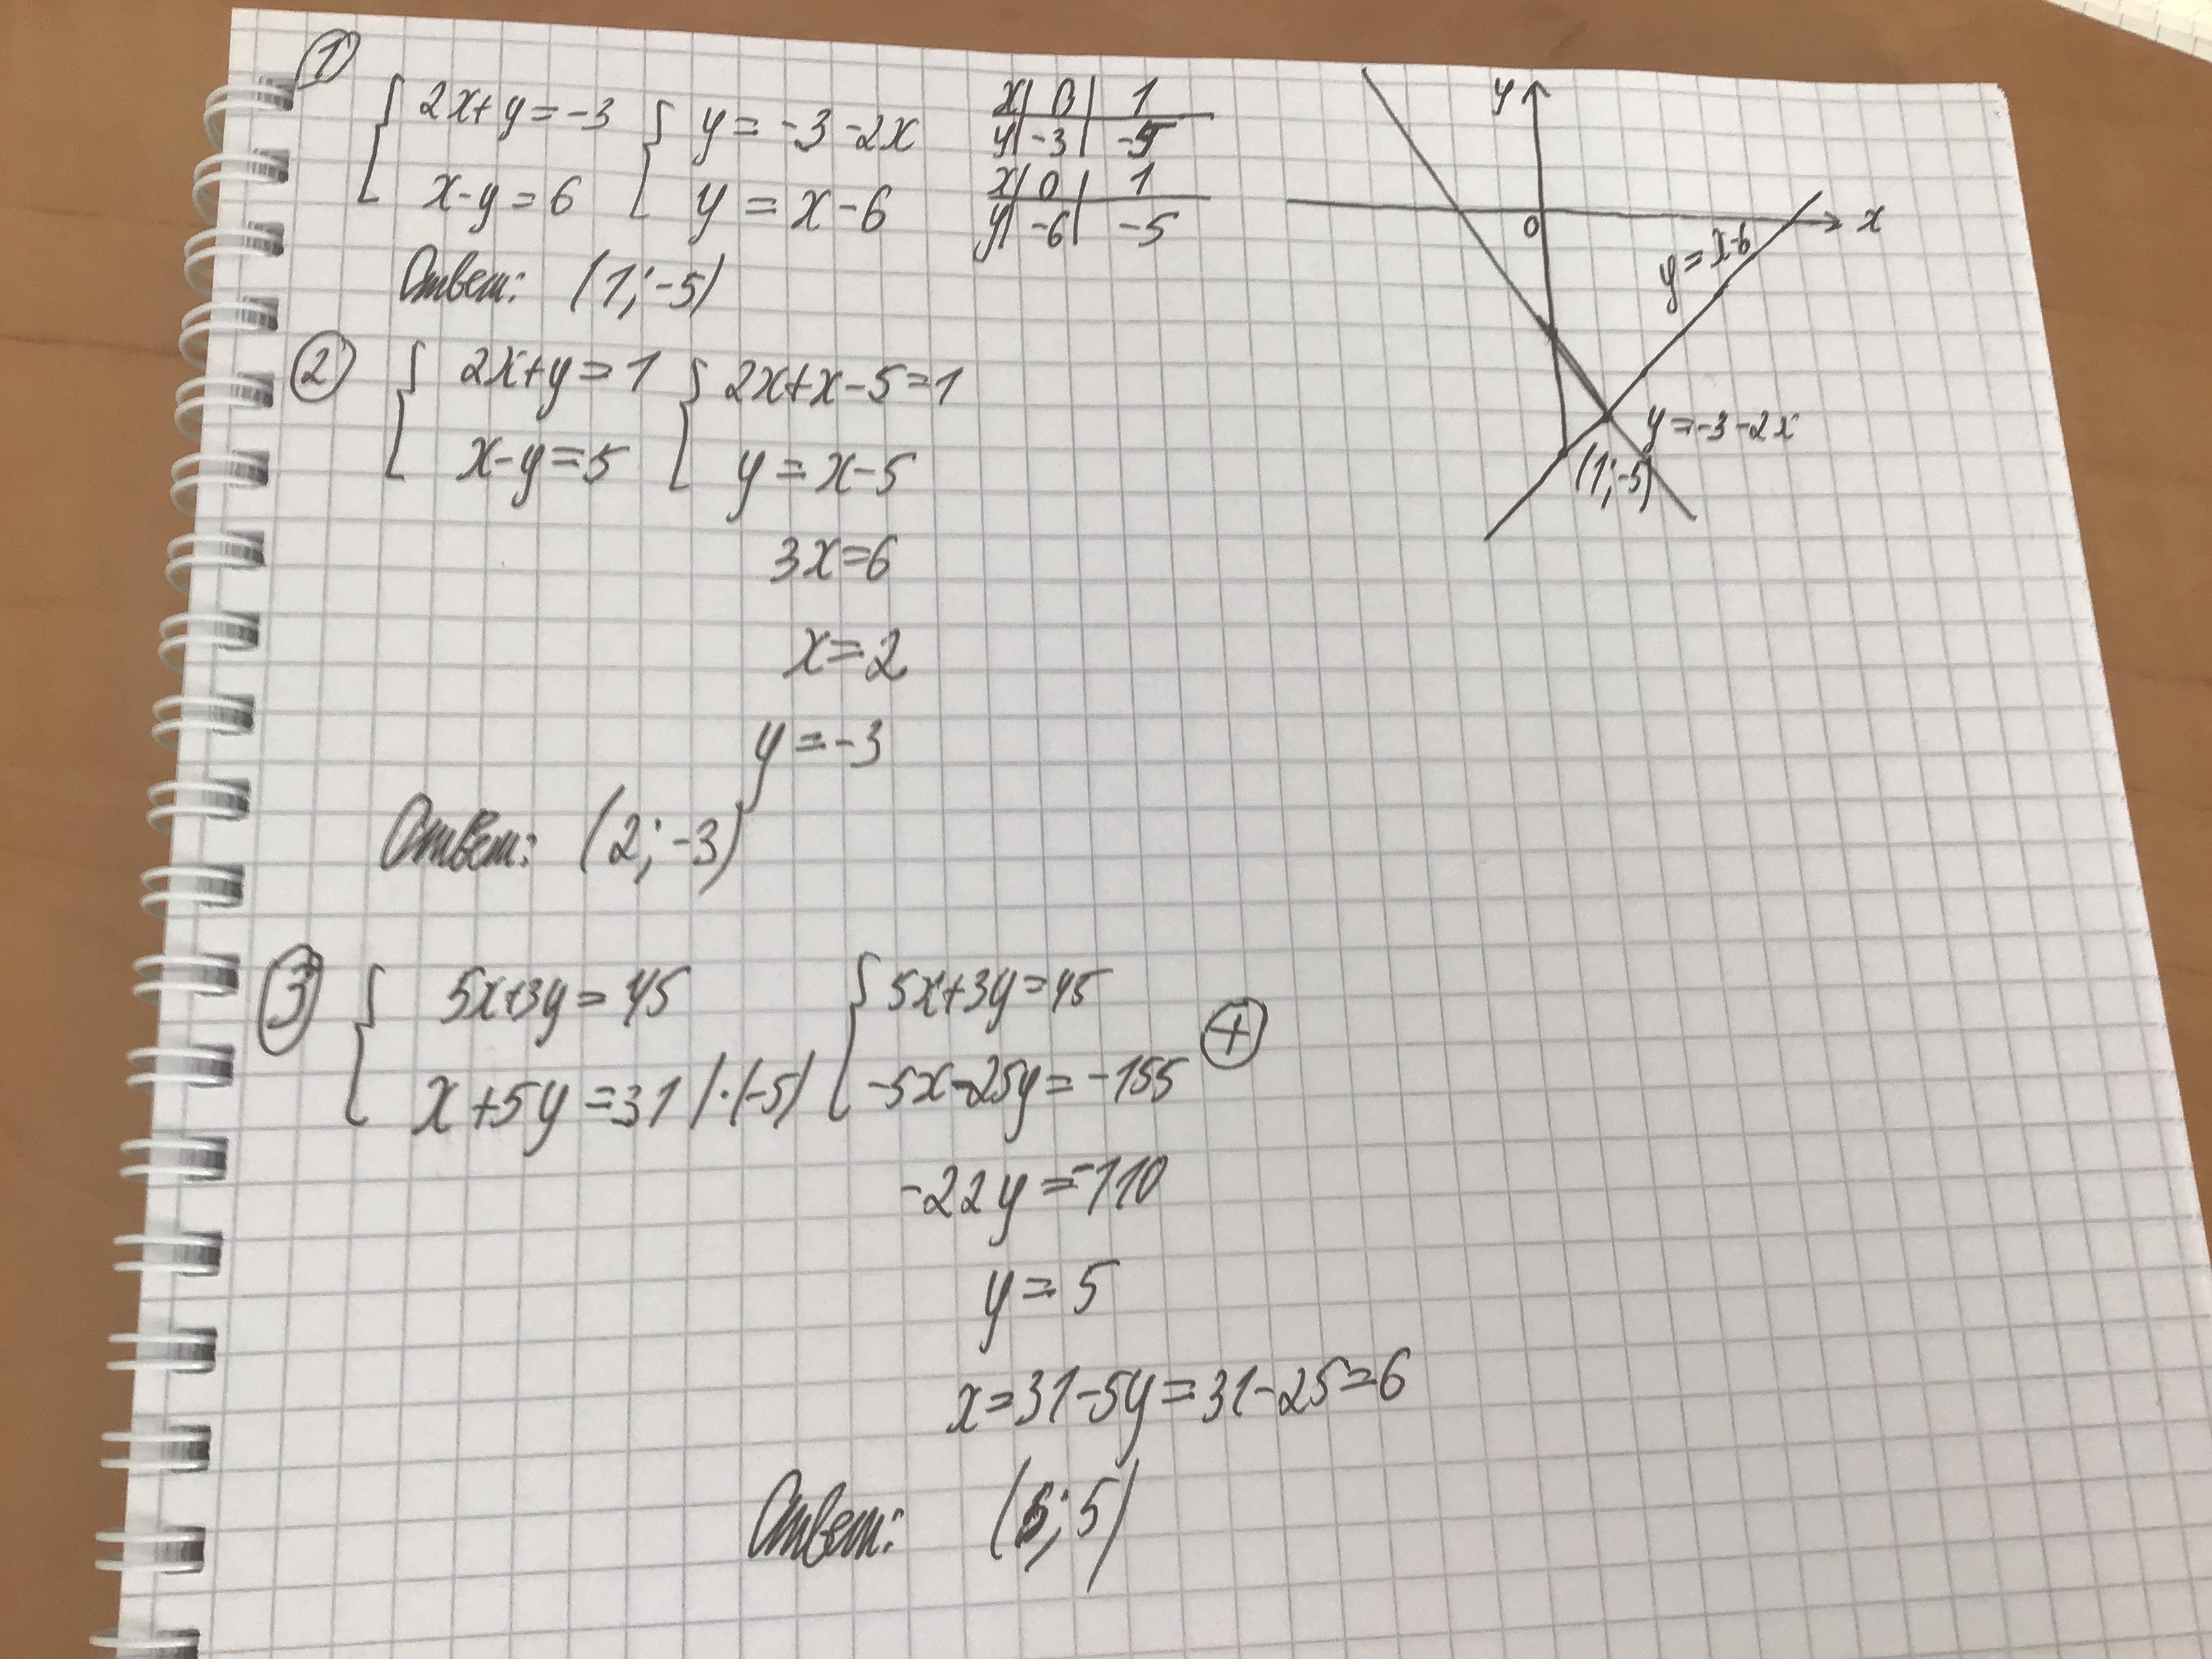 1
2x+y=-3 y=-3-2x
x-y=6 y=x-6
x 0 1
y -3 -5
x 0 1
y -6 -5
Ответ: (1;-5)
y
x
0
y=x-6
y=-3-2x
(1;-5)
2
2x+y=1 2x+x-5=1
x-y=5 y=x-5
3x=6
x=2
y=-3
Ответ: (2;-3)
3
5x+3y=45 5x+3y=45
x+5y=31 |·(-5) -5x-25y=-155 +
-22y=-110
y=5
x=31-5y=31-25=6
Ответ: (6;5)